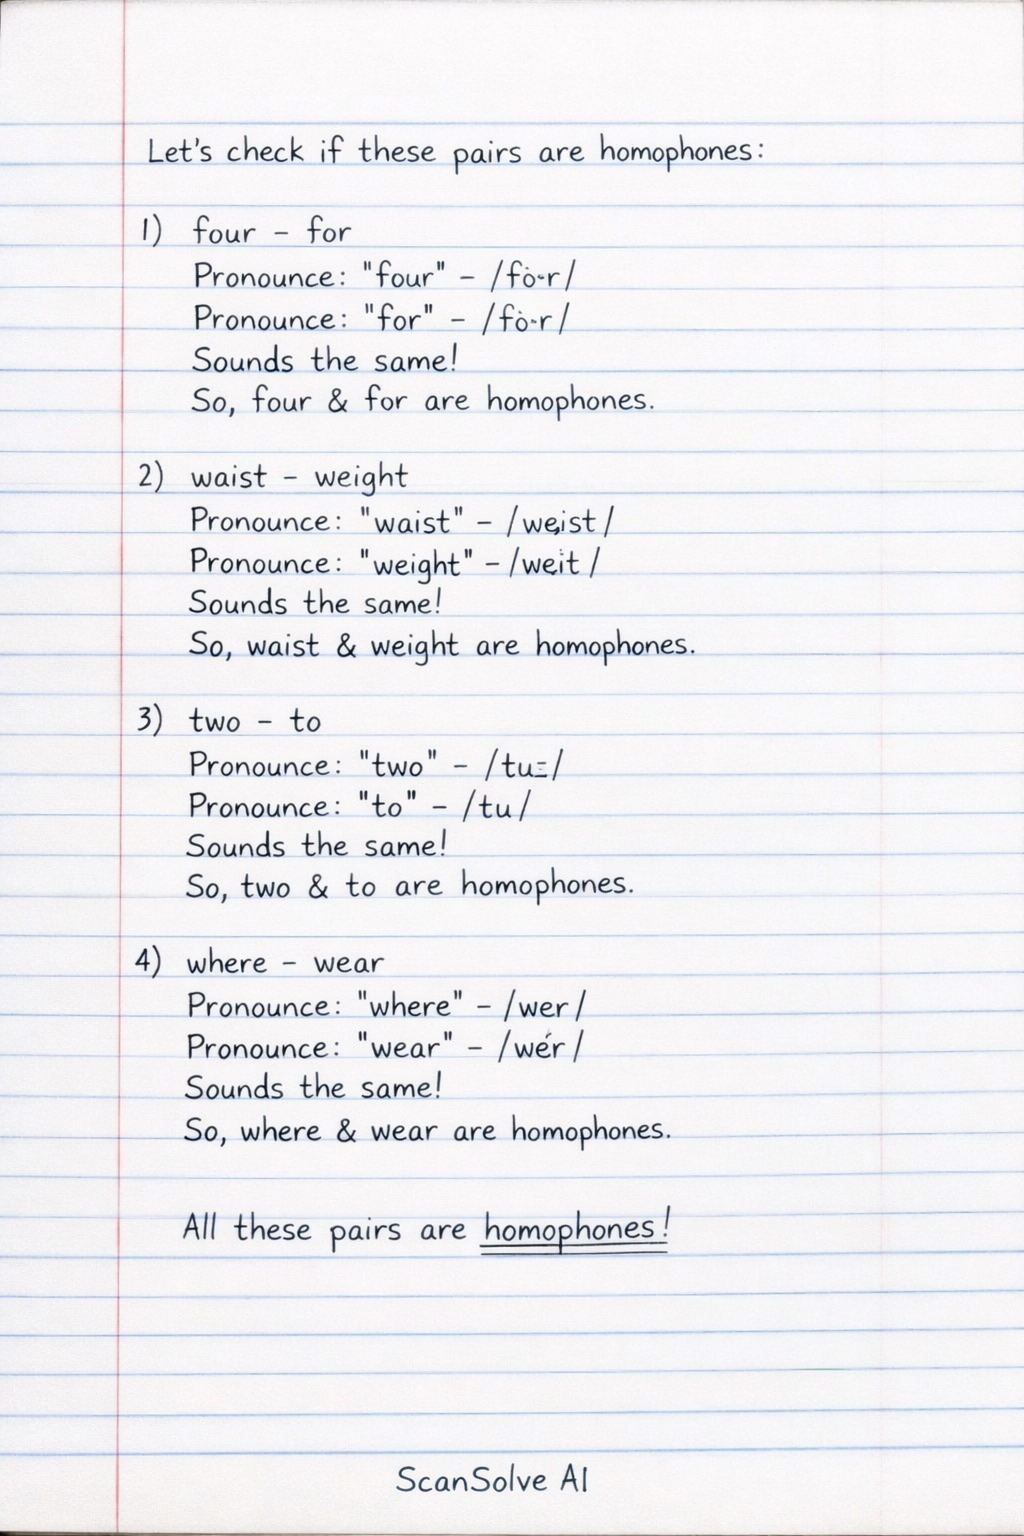 Let's check if these pairs are homophones:
1) four - for
Pronounce: "four" - /fȯ·r/
Pronounce: "for" - /fȯ·r/
Sounds the same!
So, four & for are homophones.
2) waist - weight
Pronounce: "waist" - /weist/
Pronounce: "weight" - /weit/
Sounds the same!
So, waist & weight are homophones.
3) two - to
Pronounce: "two" - /tu=/
Pronounce: "to" - /tu/
Sounds the same!
So, two & to are homophones.
4) where - wear
Pronounce: "where" - /wer/
Pronounce: "wear" - /wér/
Sounds the same!
So, where & wear are homophones.
All these pairs are homophones!
ScanSolve AI